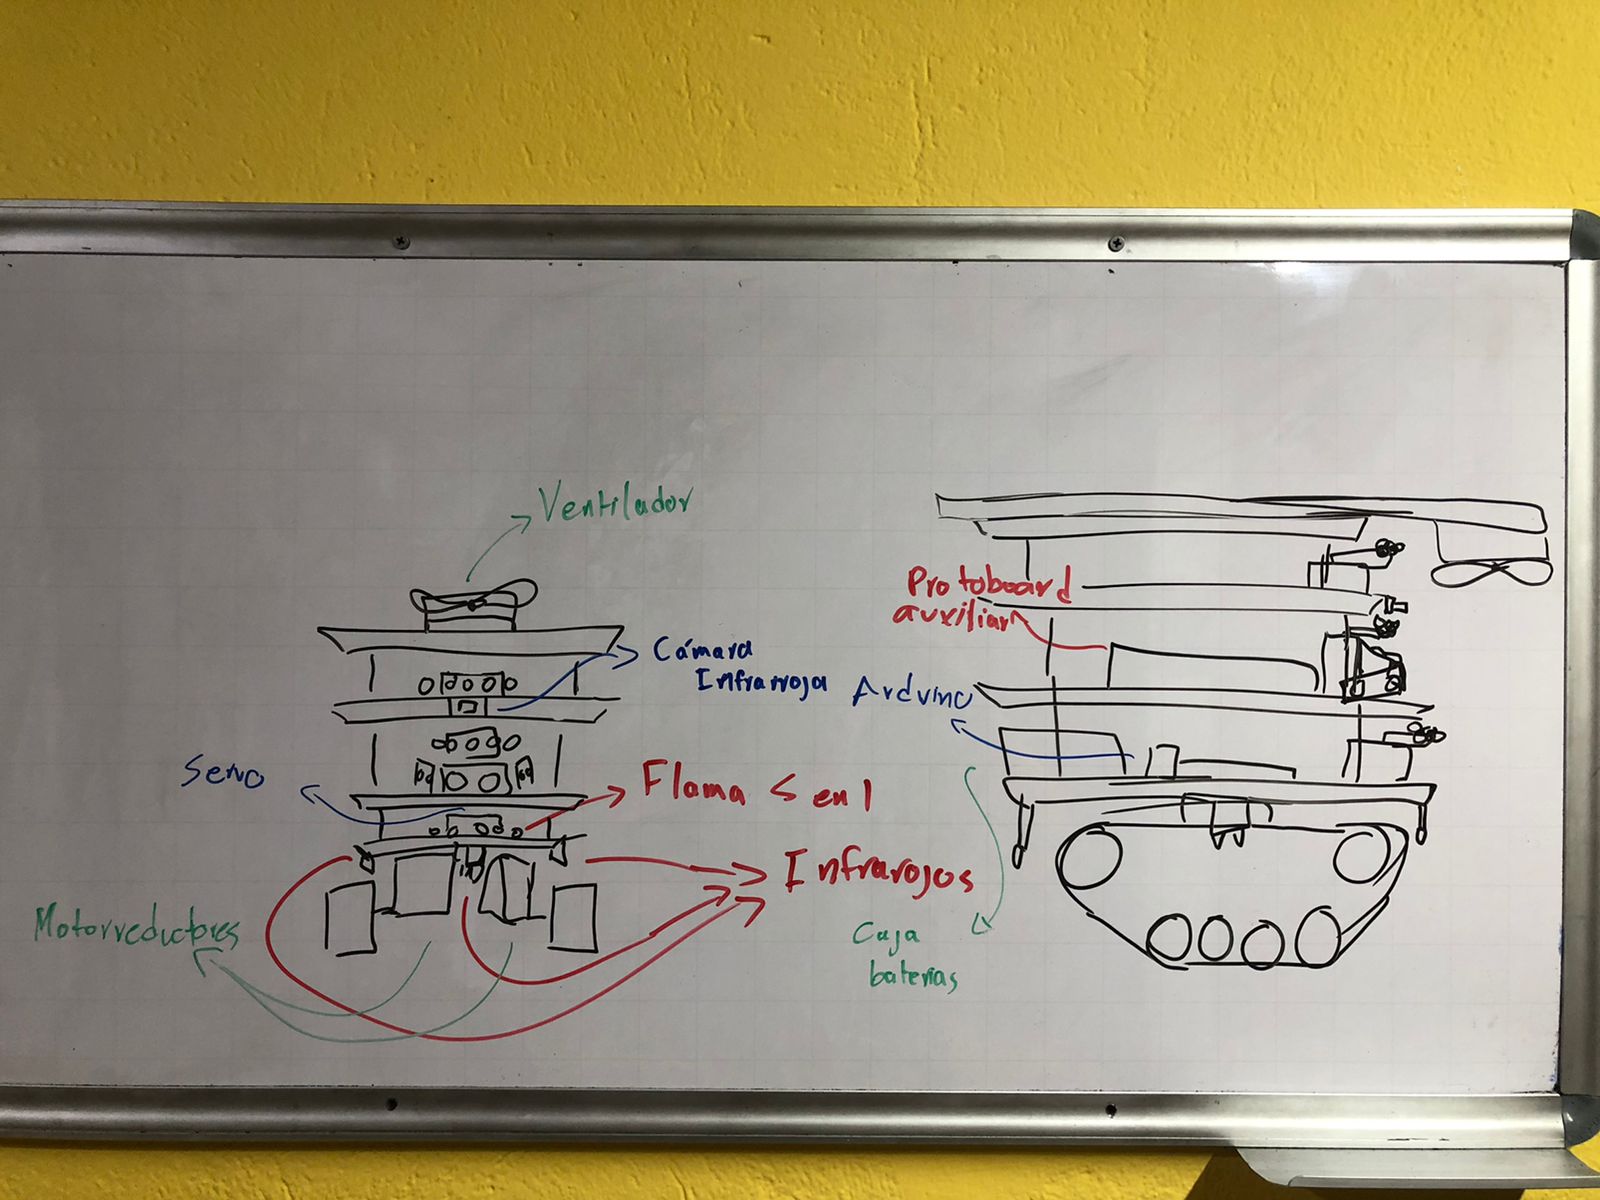 Ventilador
Cámara
Infrarroja
Servo
Flama 5 en 1
Infrarojos
Motorreductores
Protoboard
auxiliar
Arduino
Caja
baterias